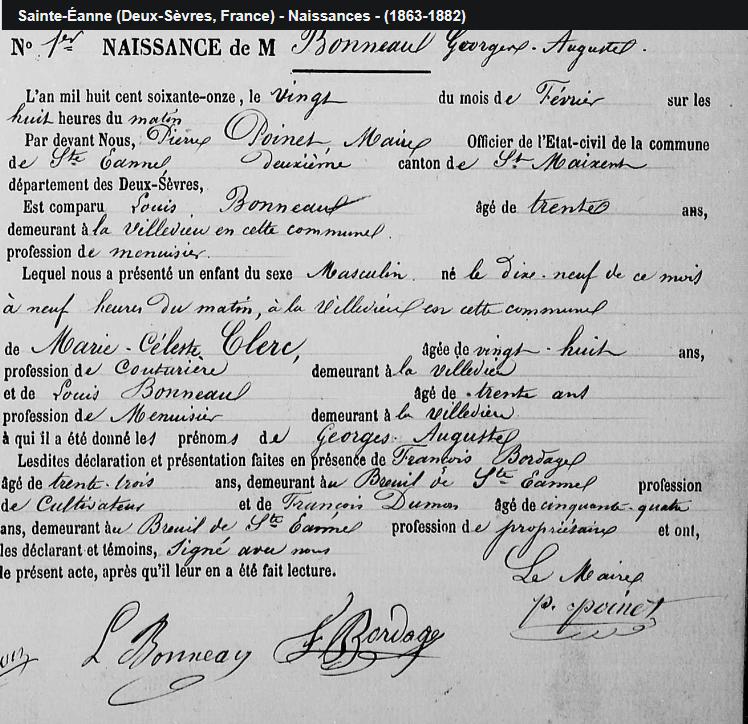 Sainte-Éanne (Deux-Sèvres, France) - Naissances - (1863-1882)
No 1er NAISSANCE de M Bonneau Georges-Auguste.
L'an mil huit cent soixante-onze, le vingt du mois de Février sur les
huit heures du matin
Par devant Nous, Pierre Poinet, Maire Officier de l'Etat-civil de la commune
de Ste Eanne, deuxième canton de St Maixent
département des Deux-Sèvres,
Est comparu Louis Bonneau âgé de trente ans,
demeurant à la Villedieu en cette commune.
profession de menuisier.
Lequel nous a présenté un enfant du sexe Masculin. né le dix-neuf de ce mois
à neuf heures du matin, à la Villedieu en cette commune
de Marie-Céleste Clerc, âgée de vingt-huit ans,
profession de Couturière demeurant à la villedieu
et de Louis Bonneau âgé de trente ans
profession de Menuisier demeurant à la villedieu.
à qui il a été donné les prénoms de Georges Auguste
Lesdites déclaration et présentation faites en présence de François Bordage
âgé de trente-trois ans, demeurant au Breuil de Ste Eanne profession
de Cultivateur et de François Dumon âgé de cinquante-quatre
ans, demeurant au Breuil de Ste Eanne profession de propriétaire et ont,
les déclarant et témoins, Signé avec nous
le présent acte, après qu'il leur en a été fait lecture.
Le Maire
p. poinet
L Bonneau F Bordage